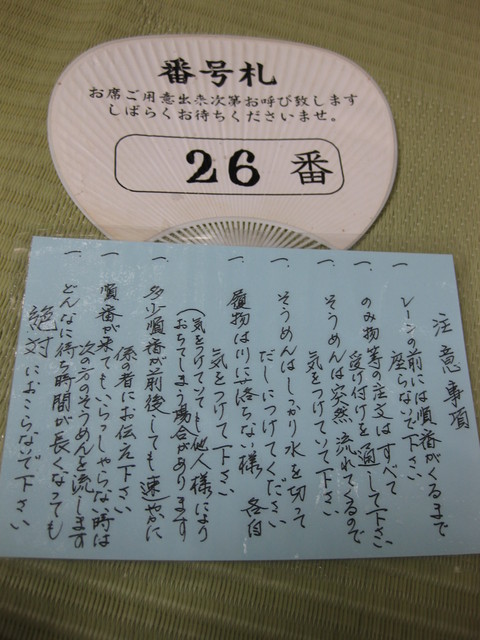 番号札
お席ご用意出来次第お呼び致します
しばらくお待ちくださいませ。
26 番
注意事項
一、レーンの前には順番がくるまで
座らないで下さい
一、のみ物等の注文はすべて
受け付けを通して下さい
一、そうめんは突然流れてくるので
気をつけていて下さい
一、そうめんはしっかり水を切って
だしにつけてください
一、履物は川に落ちない様 各自
気をつけて下さい
(気をつけていても他人様により
おちてしまう場合があります
一、多少順番が前後しても速やかに
係の者にお伝え下さい
一、順番が来てもいらっしゃらない時は
次の方のそうめんを流します
一、どんなに待ち時間が長くなっても
絶対におこらないで下さい